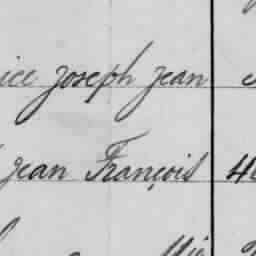 ice Joseph Jean
Jean François 4